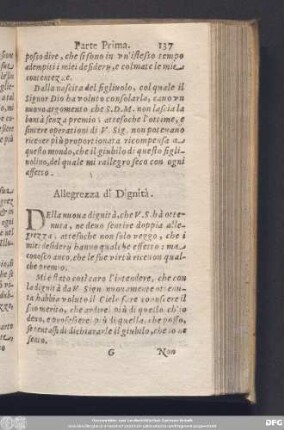 Parte Prima. 137
posso dire, che si sono in vn'istesso tempo
adempiti i miei desiderij, e colmate le mie
contentezze.
Dalla nascita del figliuolo, col quale il
Signor Dio ha voluto consolarlo, cauo vn
nuouo argomento che S.D.M. non lascia la
bontà senza premio: attesoche l'ottime, e
sincere operationi di V. Sig. non poteuano
riceuer più proportionata ricompensa a
questo mondo, che il giubilo di questo figli-
uolino, del quale mi rallegro seco con ogni
affetto.
Allegrezza di Dignità.
DElla nuoua dignità, che V.S. hà otte-
nuta, ne deuo sentire doppia alle-
grezza: attesoche non solo veggo, che i
miei desiderij hanno qualche effetto: ma
conosco anco, che le sue virtù riceuon qual-
che premio.
Mi è stato così caro l'intendere, che con
la dignità da V. Sign. nuouamente otte-
nuta habbia voluto il Cielo far conoscere il
suo merito, che ardirei più di quello, ch'io
deuo, e professerei più di quella, che posso,
se tentassi di dichiararle il giubilo, che io ne
sento.
G Non
DFG